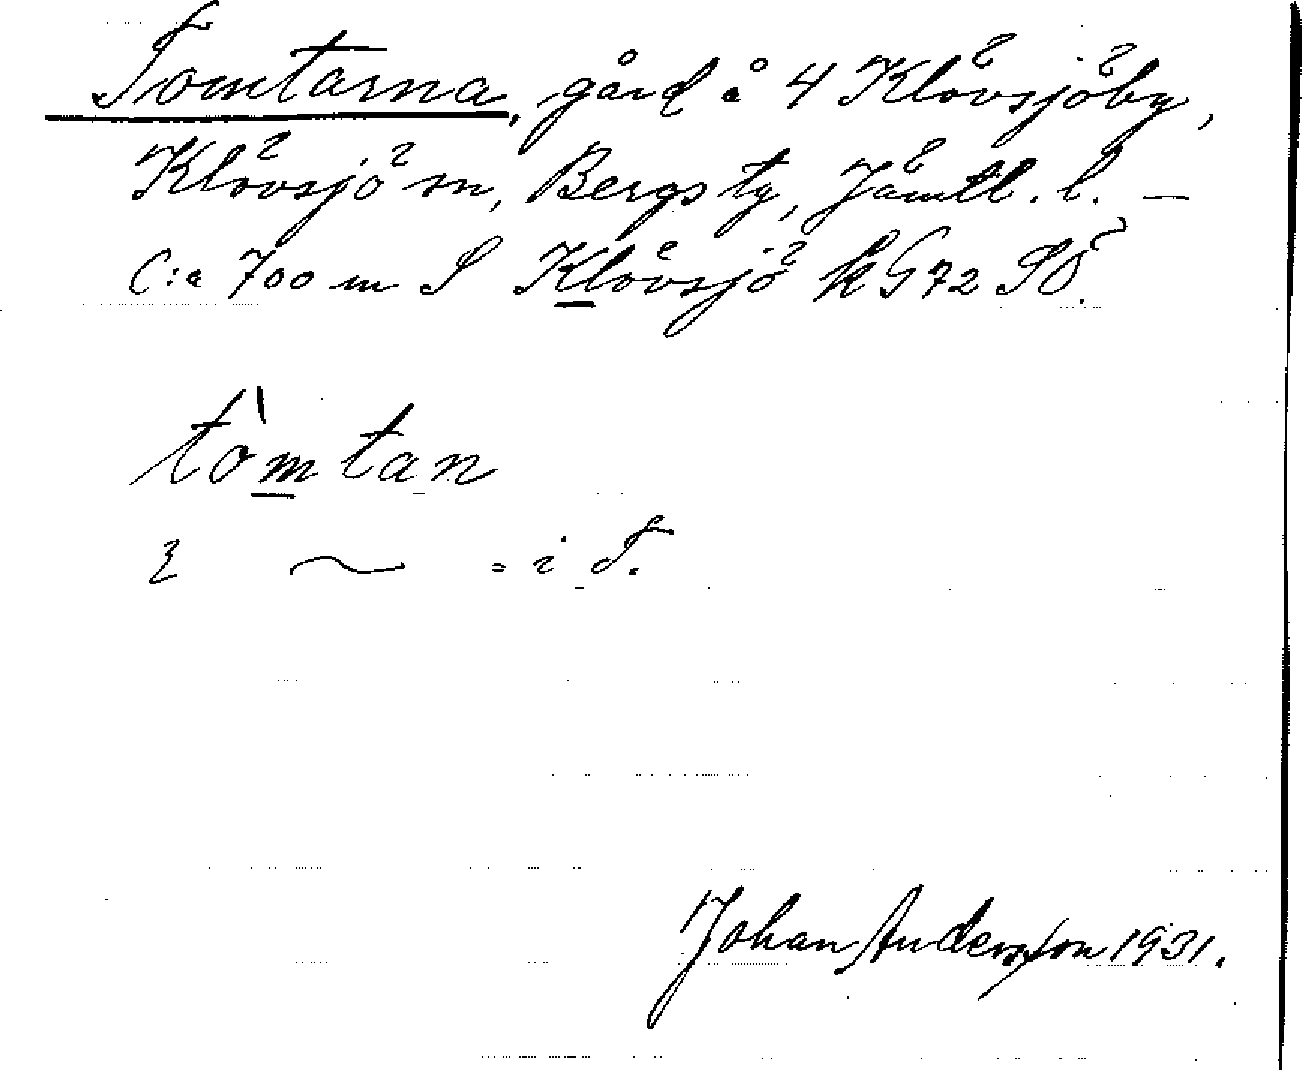 Tomtarna, gård å 4 Klövsjöby,
Klövsjö sn, Bergs tg, Jämtl. l. —
C:a 700 m S Klövsjö k G 72 SÖ.
tòmtan
i ~ = i T.
Johan Andersson 1931.